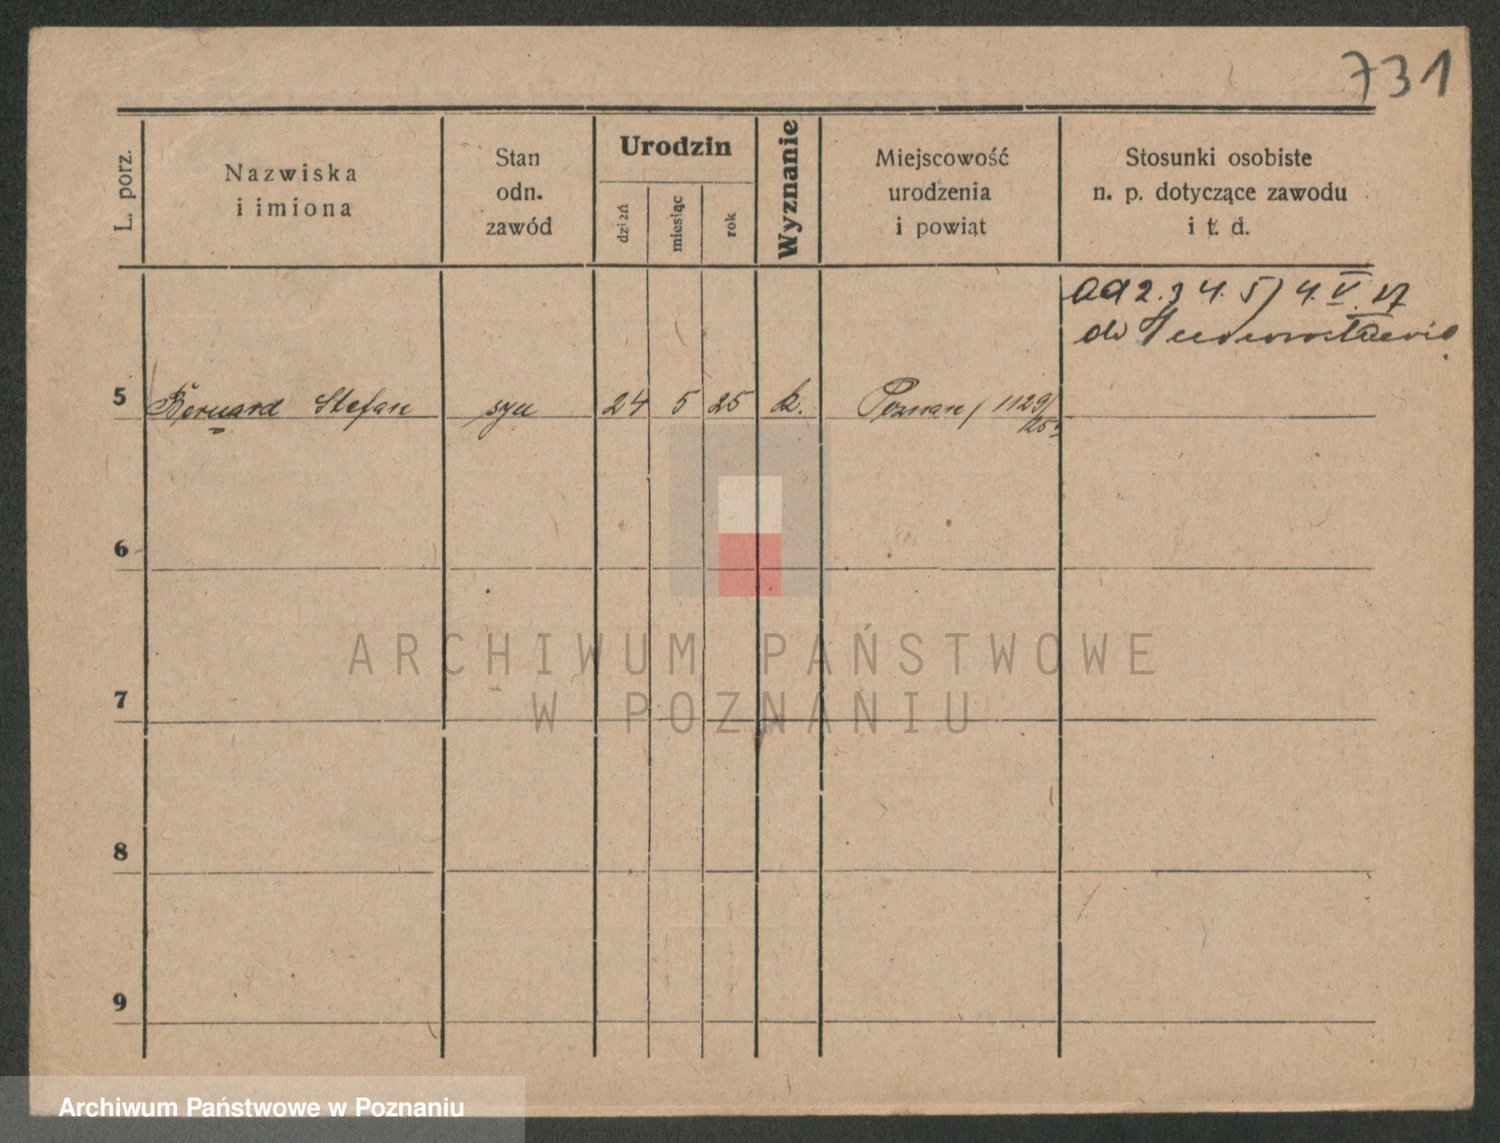 731
L. porz.
Nazwiska
i imiona
Stan
odn.
zawód
Urodzin
dzień
miesiąc
rok
Wyznanie
Miejscowość
urodzenia
i powiat
Stosunki osobiste
n. p. dotyczące zawodu
i t. d.
ad 2. 3 4. 5) 4. V. 27
do
5 Bernard Stefan syn 24 5 25 k. Poznań / 1129/
/25
6
7
8
9
ARCHIWUM PAŃSTWOWE
W POZNANIU
Archiwum Państwowe w Poznaniu